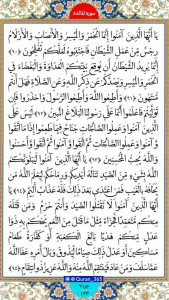 سورة المائدة
يَا أَيُّهَا الَّذِينَ آمَنُوا إِنَّمَا الْخَمْرُ وَالْمَيْسِرُ وَالْأَنْصَابُ وَالْأَزْلَامُ
رِجْسٌ مِنْ عَمَلِ الشَّيْطَانِ فَاجْتَنِبُوهُ لَعَلَّكُمْ تُفْلِحُونَ ﴿٩٠﴾
إِنَّمَا يُرِيدُ الشَّيْطَانُ أَنْ يُوقِعَ بَيْنَكُمُ الْعَدَاوَةَ وَالْبَغْضَاءَ فِي
الْخَمْرِ وَالْمَيْسِرِ وَيَصُدَّكُمْ عَنْ ذِكْرِ اللَّهِ وَعَنِ الصَّلَاةِ فَهَلْ أَنْتُمْ
مُنْتَهُونَ ﴿٩١﴾ وَأَطِيعُوا اللَّهَ وَأَطِيعُوا الرَّسُولَ وَاحْذَرُوا فَإِنْ
تَوَلَّيْتُمْ فَاعْلَمُوا أَنَّمَا عَلَى رَسُولِنَا الْبَلَاغُ الْمُبِينُ ﴿٩٢﴾ لَيْسَ عَلَى
الَّذِينَ آمَنُوا وَعَمِلُوا الصَّالِحَاتِ جُنَاحٌ فِيمَا طَعِمُوا إِذَا مَا اتَّقَوْا
وَآمَنُوا وَعَمِلُوا الصَّالِحَاتِ ثُمَّ اتَّقَوْا وَآمَنُوا ثُمَّ اتَّقَوْا وَأَحْسَنُوا
وَاللَّهُ يُحِبُّ الْمُحْسِنِينَ ﴿٩٣﴾ يَا أَيُّهَا الَّذِينَ آمَنُوا لَيَبْلُوَنَّكُمُ
اللَّهُ بِشَيْءٍ مِنَ الصَّيْدِ تَنَالُهُ أَيْدِيكُمْ وَرِمَاحُكُمْ لِيَعْلَمَ اللَّهُ مَنْ
يَخَافُهُ بِالْغَيْبِ فَمَنِ اعْتَدَى بَعْدَ ذَلِكَ فَلَهُ عَذَابٌ أَلِيمٌ ﴿٩٤﴾ يَا
أَيُّهَا الَّذِينَ آمَنُوا لَا تَقْتُلُوا الصَّيْدَ وَأَنْتُمْ حُرُمٌ وَمَنْ قَتَلَهُ
مِنْكُمْ مُتَعَمِّدًا فَجَزَاءٌ مِثْلُ مَا قَتَلَ مِنَ النَّعَمِ يَحْكُمُ بِهِ ذَوَا
عَدْلٍ مِنْكُمْ هَدْيًا بَالِغَ الْكَعْبَةِ أَوْ كَفَّارَةٌ طَعَامُ
مَسَاكِينَ أَوْ عَدْلُ ذَلِكَ صِيَامًا لِيَذُوقَ وَبَالَ أَمْرِهِ عَفَا اللَّهُ
عَمَّا سَلَفَ وَمَنْ عَادَ فَيَنْتَقِمُ اللَّهُ مِنْهُ وَاللَّهُ عَزِيزٌ ذُو انْتِقَامٍ ﴿٩٥﴾
@Quran_365
جزء ۷
۱۲۳